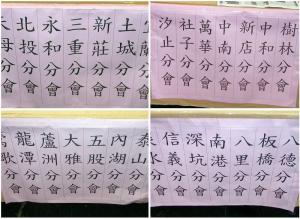 宜蘭分會
土城分會
新莊分會
三重分會
永和分會
北投分會
天母分會
樹林分會
中和分會
新店分會
中南分會
萬華分會
社子分會
汐止分會
泰山分會
內湖分會
五股分會
大雅分會
蘆洲分會
龍潭分會
鶯歌分會
八德分會
板橋分會
八里分會
南港分會
深坑分會
信義分會